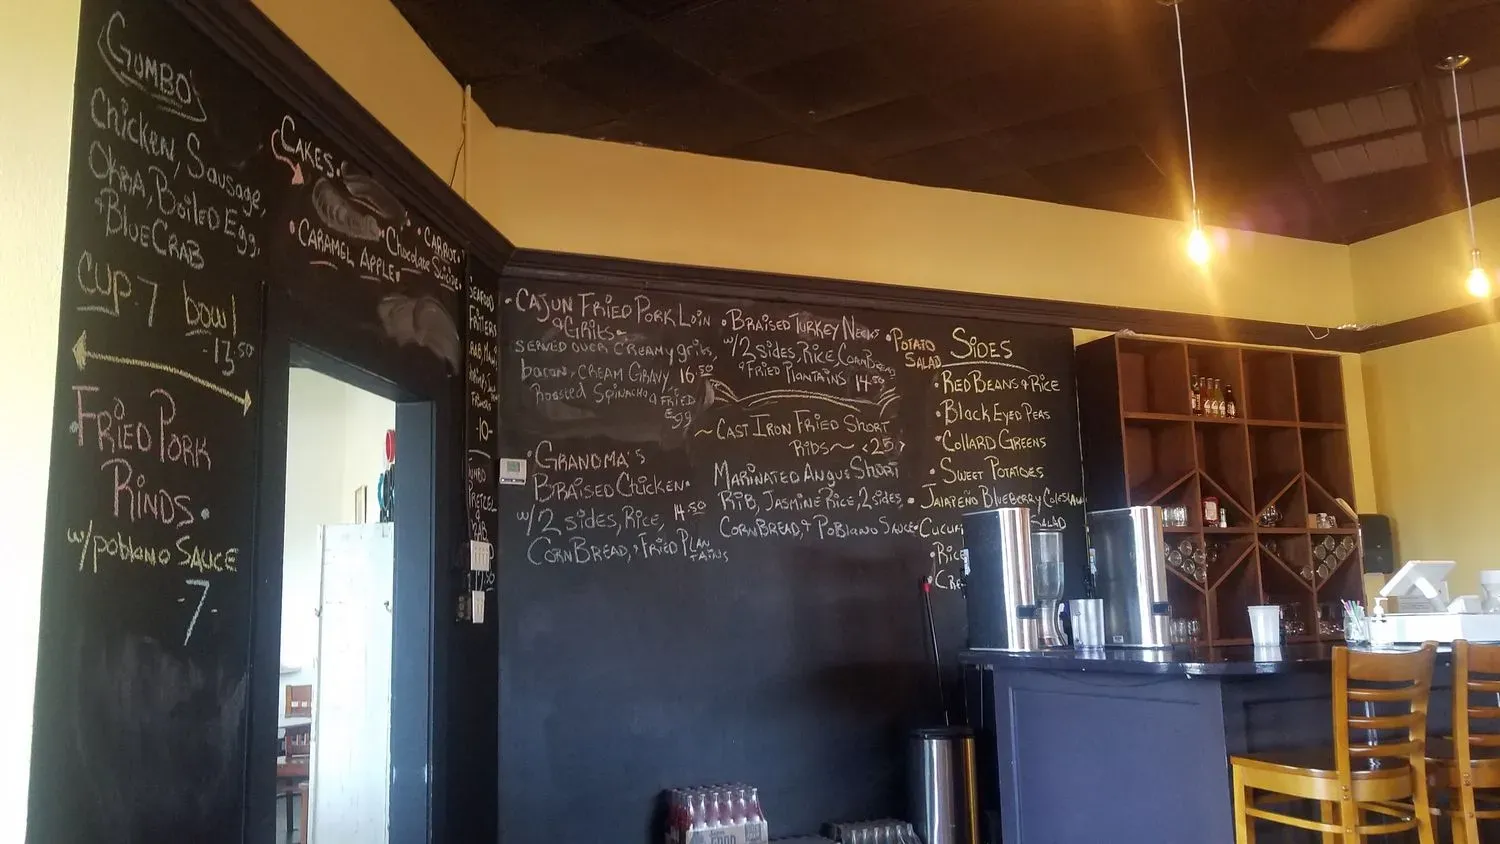 GUMBO'S
Chicken, Sausage,
OKRA, Boiled Egg,
& BLUE CRAB
CUP-7 bowl
-13.50
FRIED PORK
RINDS.
w/poblano SAUCE
-7-
CAKES.
• CARROT •
• Chocolate Suicide •
• CARAMEL APPLE •
SEAFOOD
FRITTERS
-10-
PRETZEL
CRAB
17.50
• CAJUN FRIED PORK LOIN
& GRITS •
SERVED OVER CREAMY grits,
bacon, CREAM GRAVY, 16.50
Roasted Spinach & FRIED
Egg
• GRANDMA'S
BRAISED CHICKEN •
w/2 sides, RICE, 14.50
CORNBREAD, & FRIED PLAN
TAINS
• BRAISED TURKEY NECKS
w/2 sides, RICE, CORNBREAD
& FRIED PLANTAINS 14.50
~ CAST IRON FRIED SHORT
RIBS ~ <25>
MARINATED ANGUS SHORT
RIB, JASMINE RICE, 2 sides,
CORNBREAD, & POBLANO SAUCE
SIDES
• POTATO
SALAD
• RED BEANS & RICE
• BLACK EYED PEAS
• COLLARD GREENS
• SWEET POTATOES
• JALAPEÑO BLUEBERRY COLESLAW
• CUCU
SALAD
• RICE
• CRE